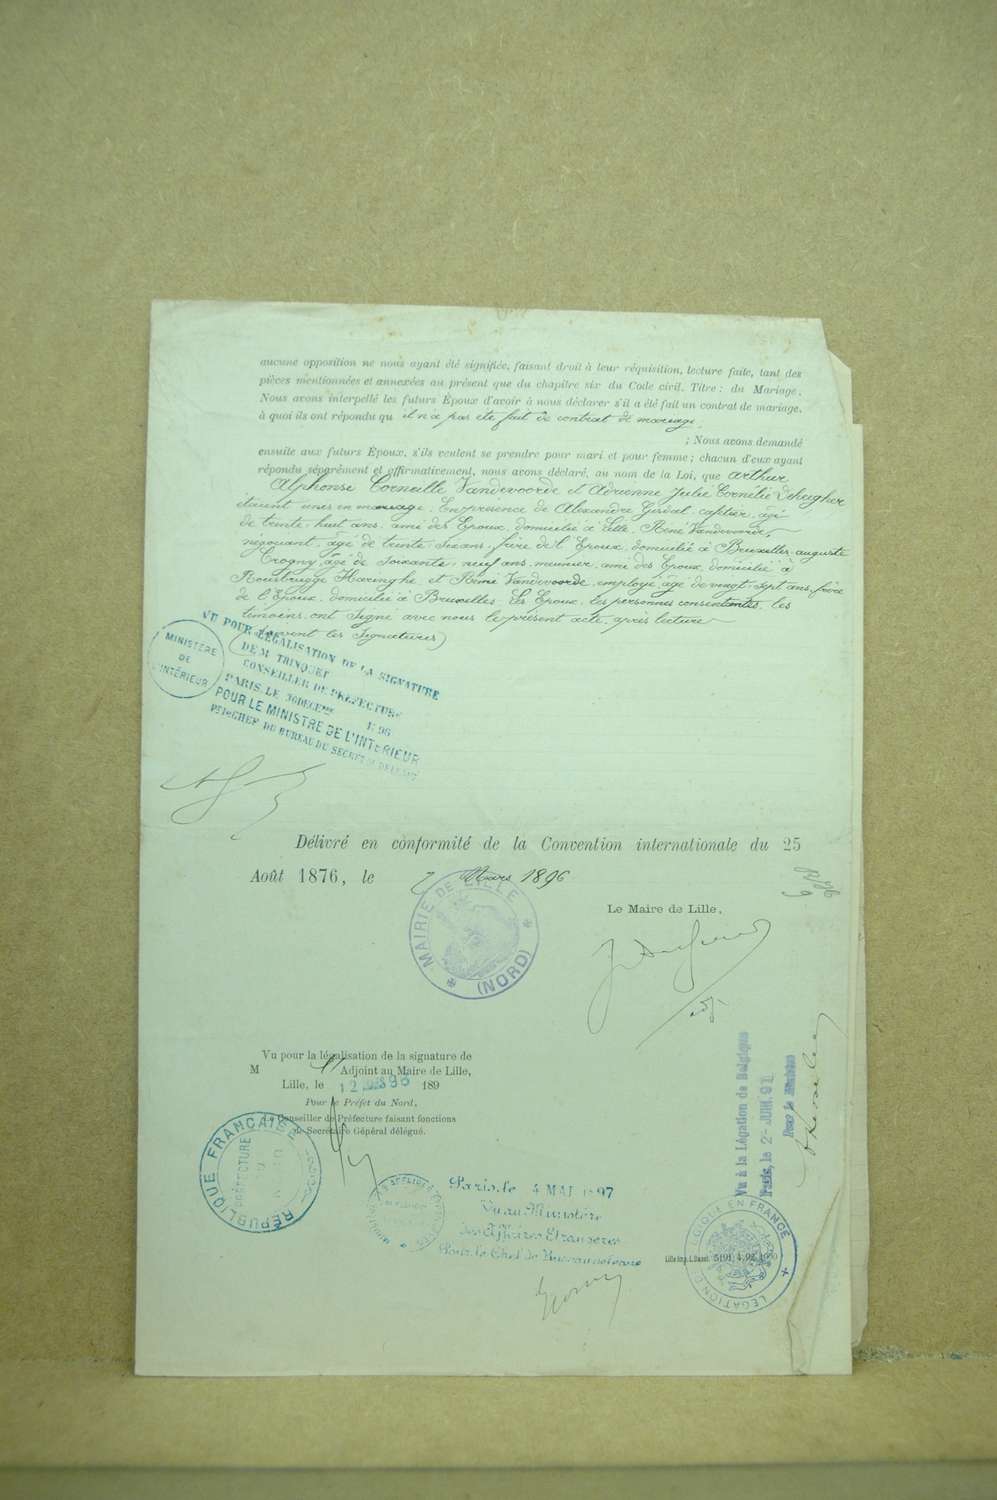 aucune opposition ne nous ayant été signifiée, faisant droit à leur réquisition, lecture faite, tant des
pièces mentionnées et annexées au présent que du chapitre six du Code civil. Titre : du Mariage.
Nous avons interpellé les futurs Époux d'avoir à nous déclarer s'il a été fait un contrat de mariage,
à quoi ils ont répondu qu il n'a pas été fait de contrat de mariage.
; Nous avons demandé
ensuite aux futurs Époux, s'ils veulent se prendre pour mari et pour femme ; chacun d'eux ayant
répondu séparément et affirmativement, nous avons déclaré, au nom de la Loi, que arthur
Alphonse Corneille Vandevoorde et Adrienne Julie Cornélie
étaient unis en mariage. En présence de Alexandre âgé
de trente huit ans, ami des Epoux, domicilié à Lille, René Vandevoorde,
négociant, âgé de trente six ans, frère de l'Epoux, domicilié à Bruxelles, auguste
Crogny, âgé de Soixante neuf ans, meunier, ami des Epoux, domicilié à
Rousbrugge Haringhe, et Rémi Vandevoorde, employé, âgé de vingt sept ans, frère
de l'Epoux, domicilié à Bruxelles. Les Epoux, les personnes consentantes, les
témoins, ont Signé avec nous le présent acte, après lecture
(Suivent les Signatures)
VU POUR LÉGALISATION DE LA SIGNATURE
DE M TRINQUET
CONSEILLER DE PRÉFECTURE
PARIS, LE
POUR LE MINISTRE DE L'INTÉRIEUR
CHEF DU BUREAU DU
MINISTÈRE
DE
L'INTÉRIEUR
Délivré en conformité de la Convention internationale du 25
Août 1876, le 7 Mars 1896
MAIRIE DE LILLE
(NORD)
Le Maire de Lille,
adj.
Vu pour la légalisation de la signature de
M Adjoint au Maire de Lille,
Lille, le 12 189
Pour le Préfet du Nord,
Le Conseiller de Préfecture faisant fonctions
de Secrétaire Général délégué.
RÉPUBLIQUE FRANÇAISE
PRÉFECTURE
DU
NORD
Paris, le 4 MAI 1897
Vu au Ministère
des Affaires Etrangères
Pour le Chef de Bureau
Vu à la Légation de Belgique
Paris, le
Pour le Ministre
LÉGATION BELGIQUE EN FRANCE